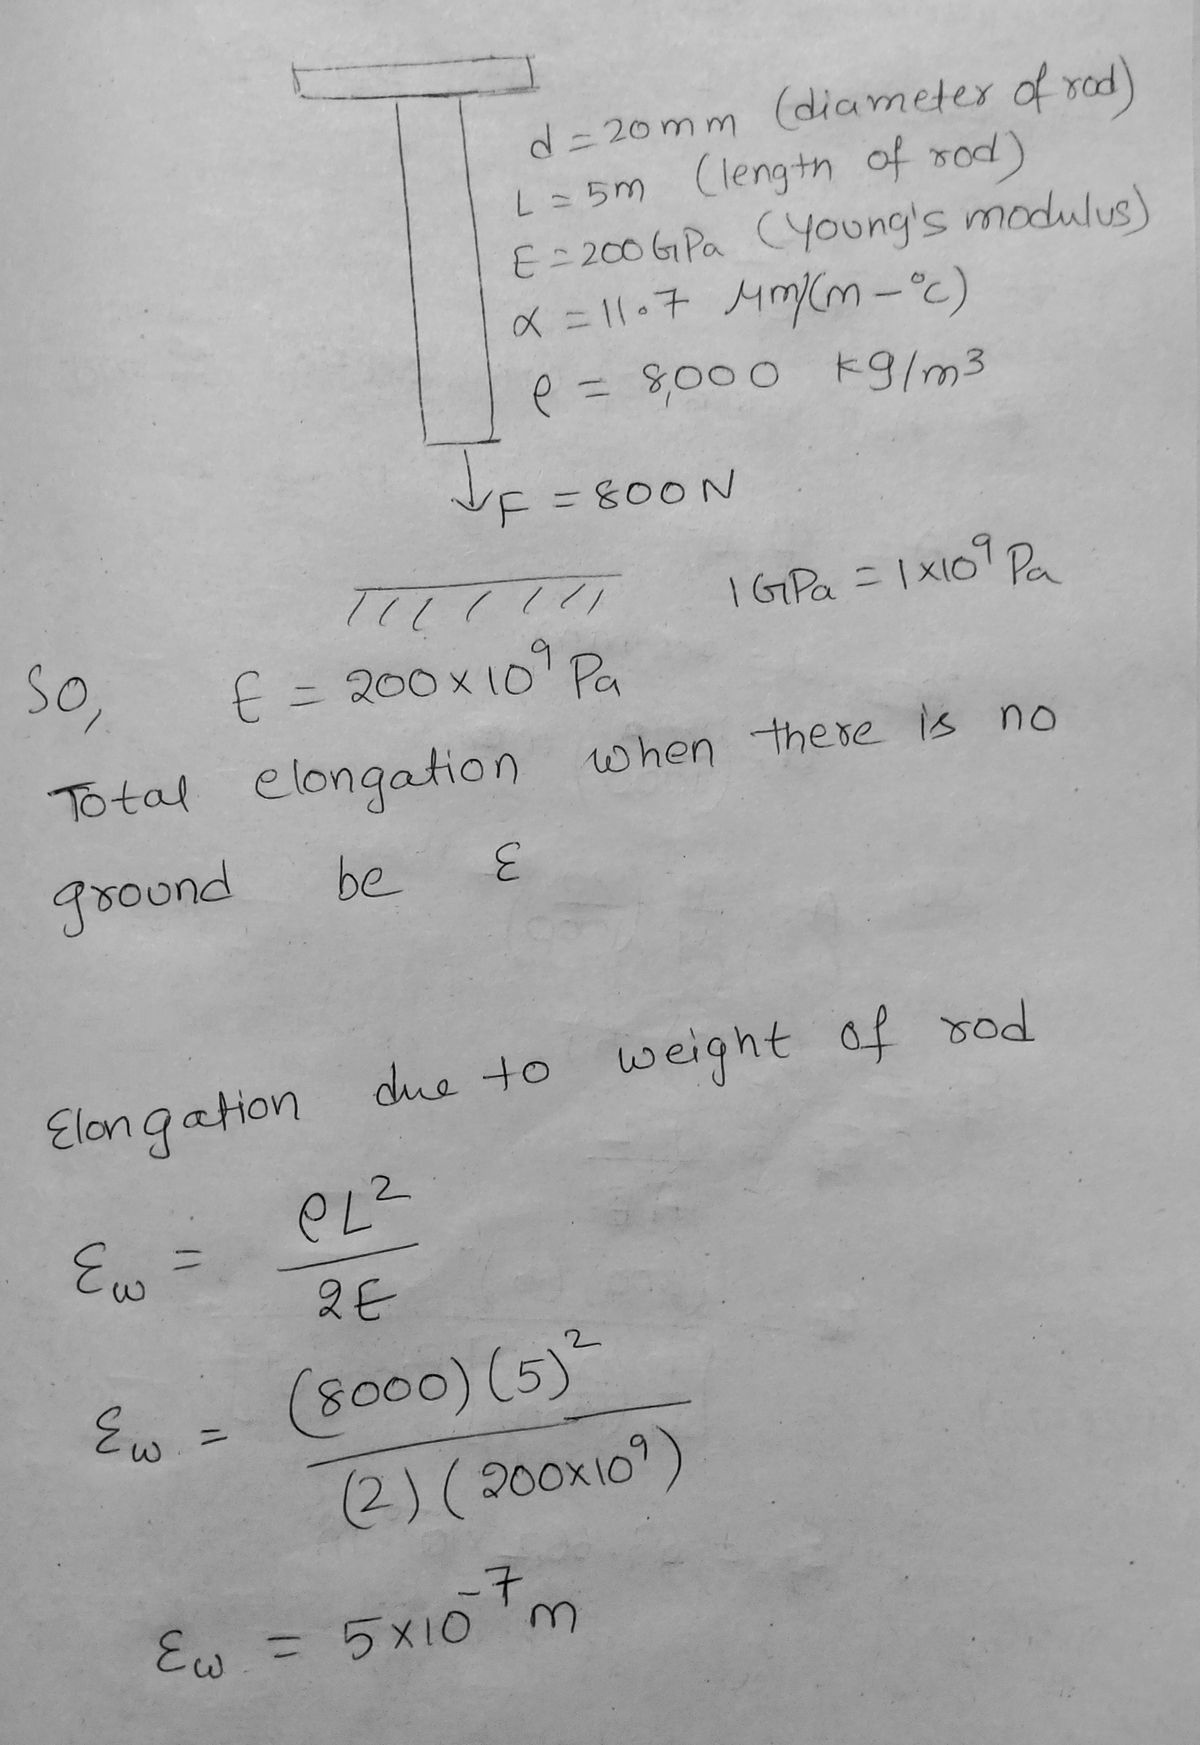 d = 20mm (diameter of rod)
L = 5m (length of rod)
E = 200 GPa (Young's modulus)
α = 11.7 μm/(m-°c)
ρ = 8,000 kg/m³
F = 800N
1 GPa = 1×10⁹ Pa
So, E = 200×10⁹ Pa
Total elongation when there is no
ground be ε
Elongation due to weight of rod
εw = ρL² / 2E
εw = (8000)(5)² / (2)(200×10⁹)
εw = 5×10⁻⁷ m